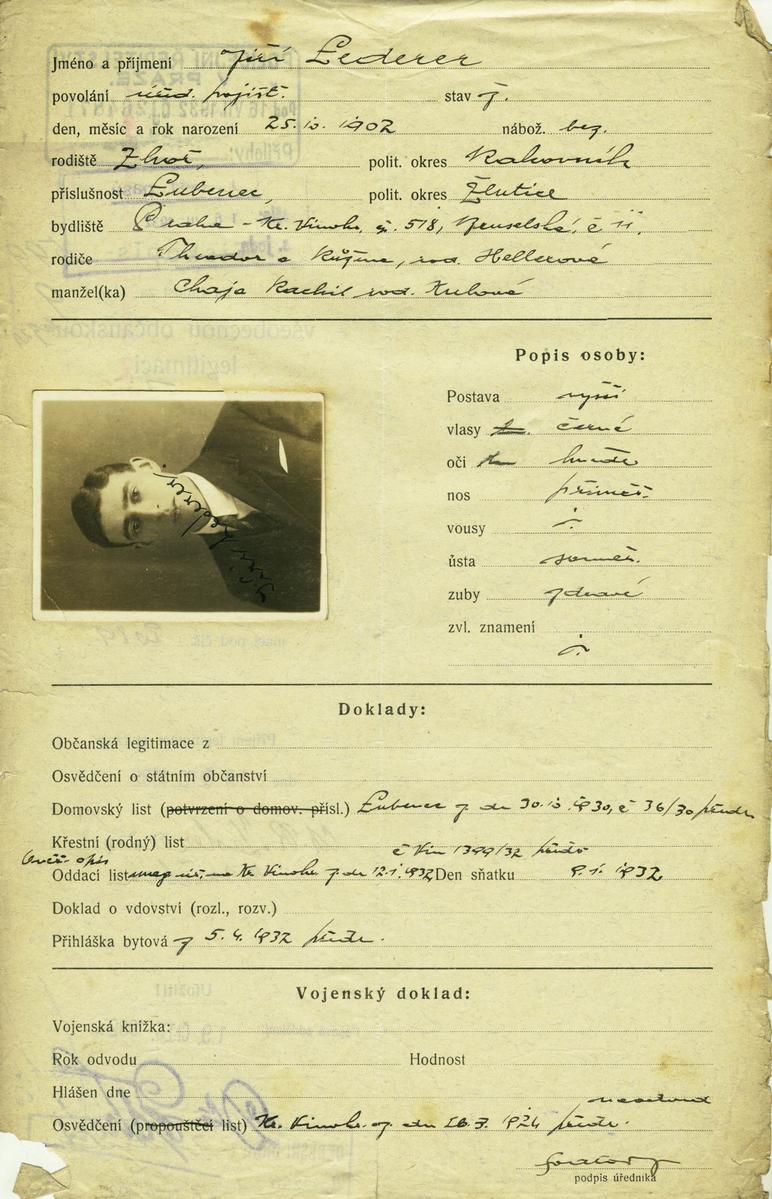 Jméno a příjmení Jiří Lederer
povolání úřed. pojišť. stav ž.
den, měsíc a rok narození 25.10.1902 nábož. bez.
rodiště polit. okres Rakovník
příslušnost Lubenec, polit. okres Žlutice
bydliště Praha - Kr. Vinohr. č. 518, Bruselská, č 11.
rodiče Theodor a Růžena, roz. Hellerové
manžel(ka) Chaja Rachil roz.
Popis osoby:
Postava vyšší
vlasy černé
oči hnědé
nos přiměř.
vousy
ústa souměr.
zuby zdravé
zvl. znamení
Jiří Lederer
Doklady:
Občanská legitimace z
Osvědčení o státním občanství
Domovský list (potvrzení o domov. přísl.) Lubenec z. de 30.10.1930, č 36/30
Křestní (rodný) list
Ověř. opis č Vin 1399/32
Oddací list na Kr. Vinohr. z. de 12.1.1932 Den sňatku 9.1.1932
Doklad o vdovství (rozl., rozv.)
Přihláška bytová z 5.4.1932
Vojenský doklad:
Vojenská knížka:
Rok odvodu Hodnost
Hlášen dne
Osvědčení (propouštěcí list) Kr. Vinohr. z. dn 26.3.1924
podpis úředníka